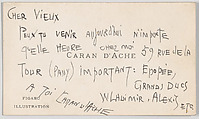 Cher Vieux
Peux tu venir aujourd'hui n'importe
quelle heure chez moi 59 rue de la
CARAN D'ACHE
Tour (Passy) important: Epopée,
Grands Ducs
à toi Caran d'Ache Wladimir, Alexis
etc
FIGARO
ILLUSTRATION